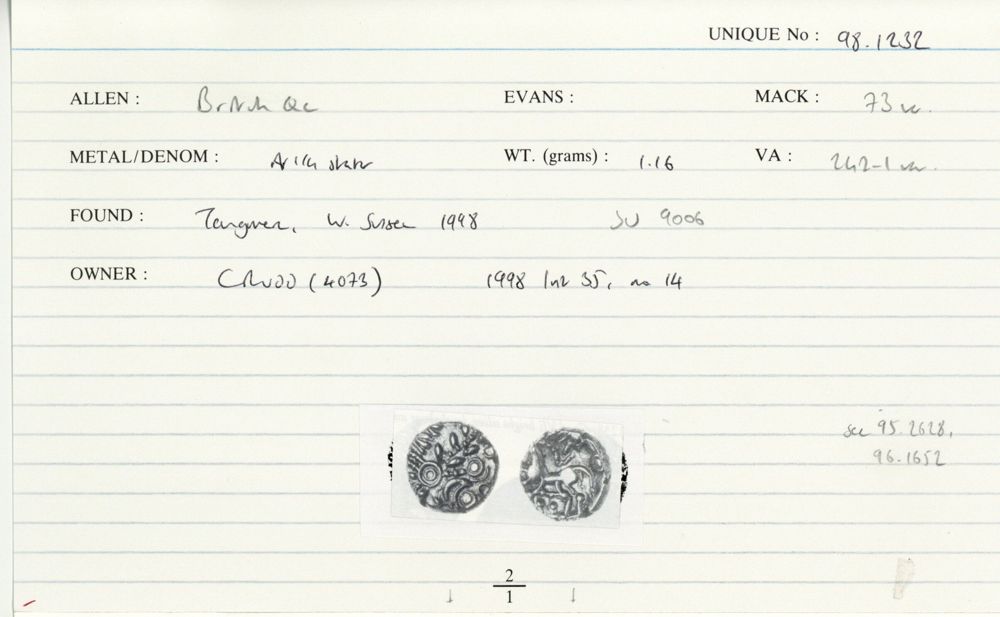 UNIQUE No : 98.1232
ALLEN : British Qc EVANS : MACK : 73 var.
METAL/DENOM : AR 1/4 stater WT. (grams) : 1.16 VA : 242-1 var.
FOUND : Tangmere, W. Sussex 1998 SU 9006
OWNER : CRUDD (4073) 1998 list 35, no 14
see 95.2628,
96.1652
2
1